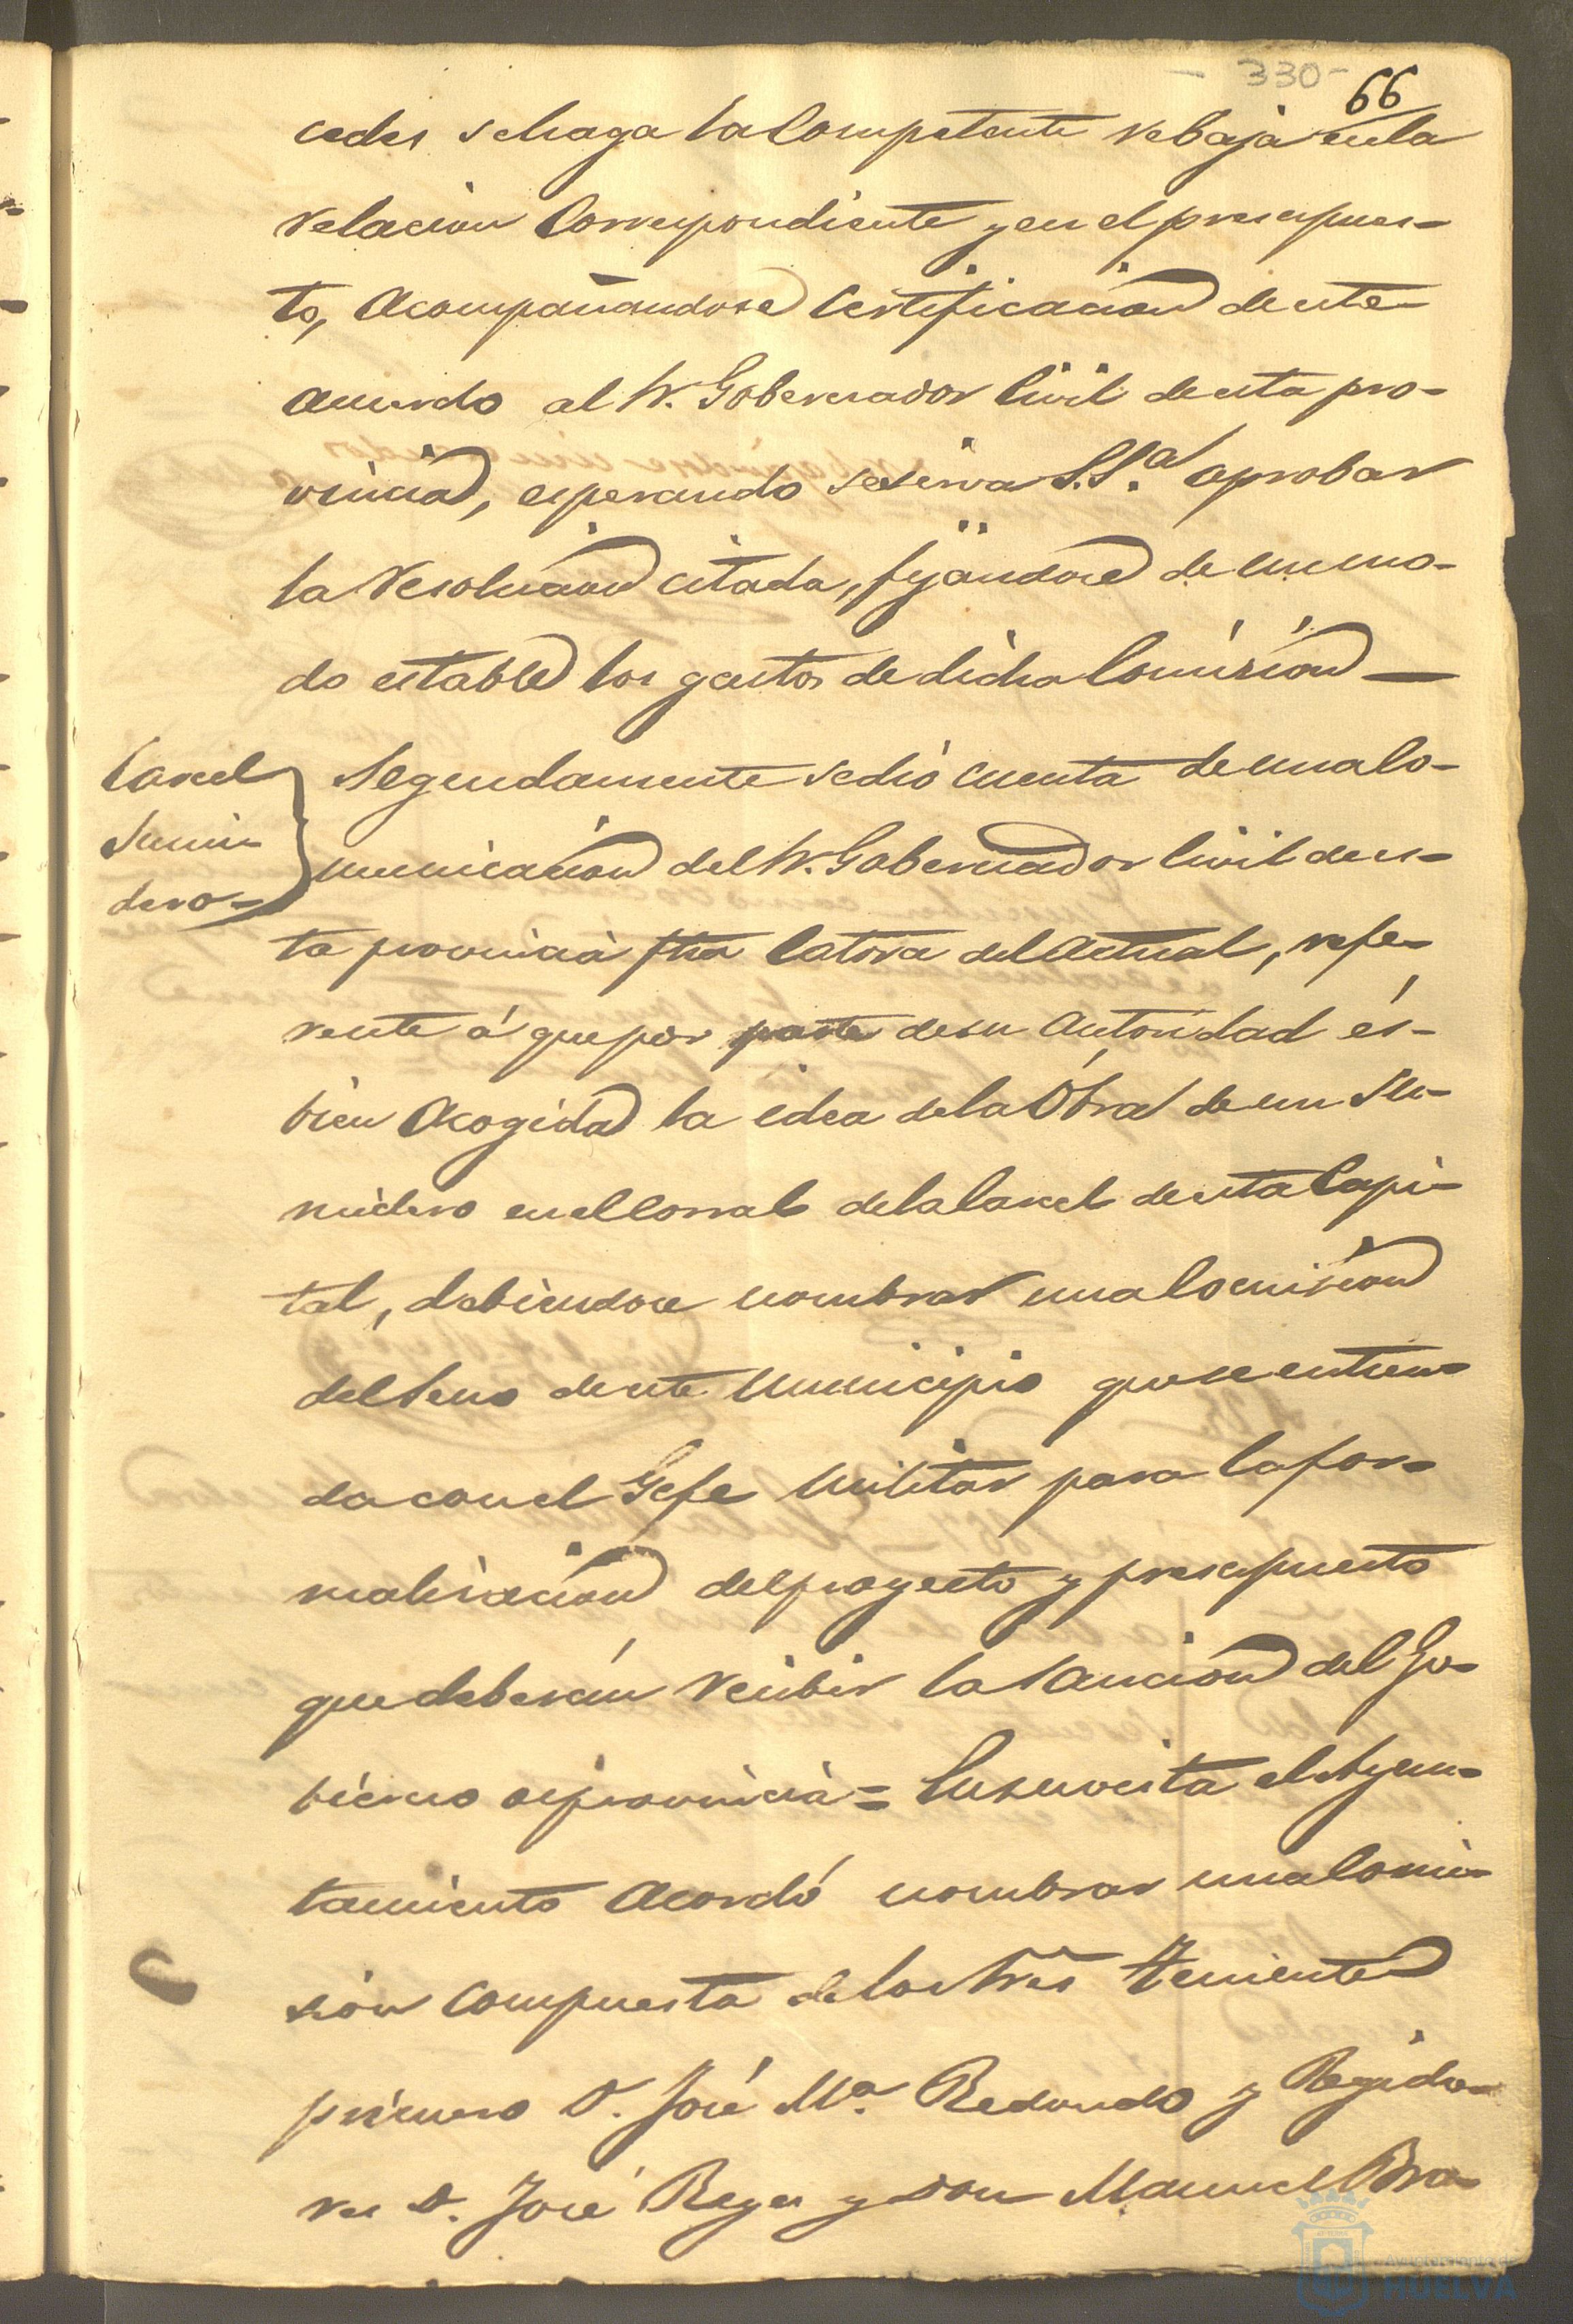 - 330 -
66
cedes se haga la Competente rebaja en la
relacion Correspondiente y en el presupues-
to, Acompañandose Certificacion de este
acuerdo al Sr. Gobernador Civil de esta pro-
vincia, esperando se sirva S.Sª. aprobar
la Resolucion citada, fijandose de un mo-
do estable los gastos de dicha Comision —
Carcel
Sumi-
dero-
Segundamente se dió cuenta de una Co-
municacion del Sr. Gobernador Civil de es-
ta provincia fha Catorce del Actual, refe-
rente á que por parte de su Autoridad és
bien Acogida la idea de la Obra de un Su-
midero en el Corral de la Carcel de esta Capi-
tal, debiendose nombrar una Comision
del Seno de este Municipio que se entien-
da con el Gefe Militar para la for-
malizacion del proyecto y presupuesto
que deberán recibir la Sancion del Go-
bierno de provincia = En su vista el Ayun-
tamiento Acordó nombrar una Comi-
sión compuesta de los Sres Teniente
primero D. José Mª. Redondo y Regido-
res D. José Reyes y Don Manuel Bra-
HUELVA